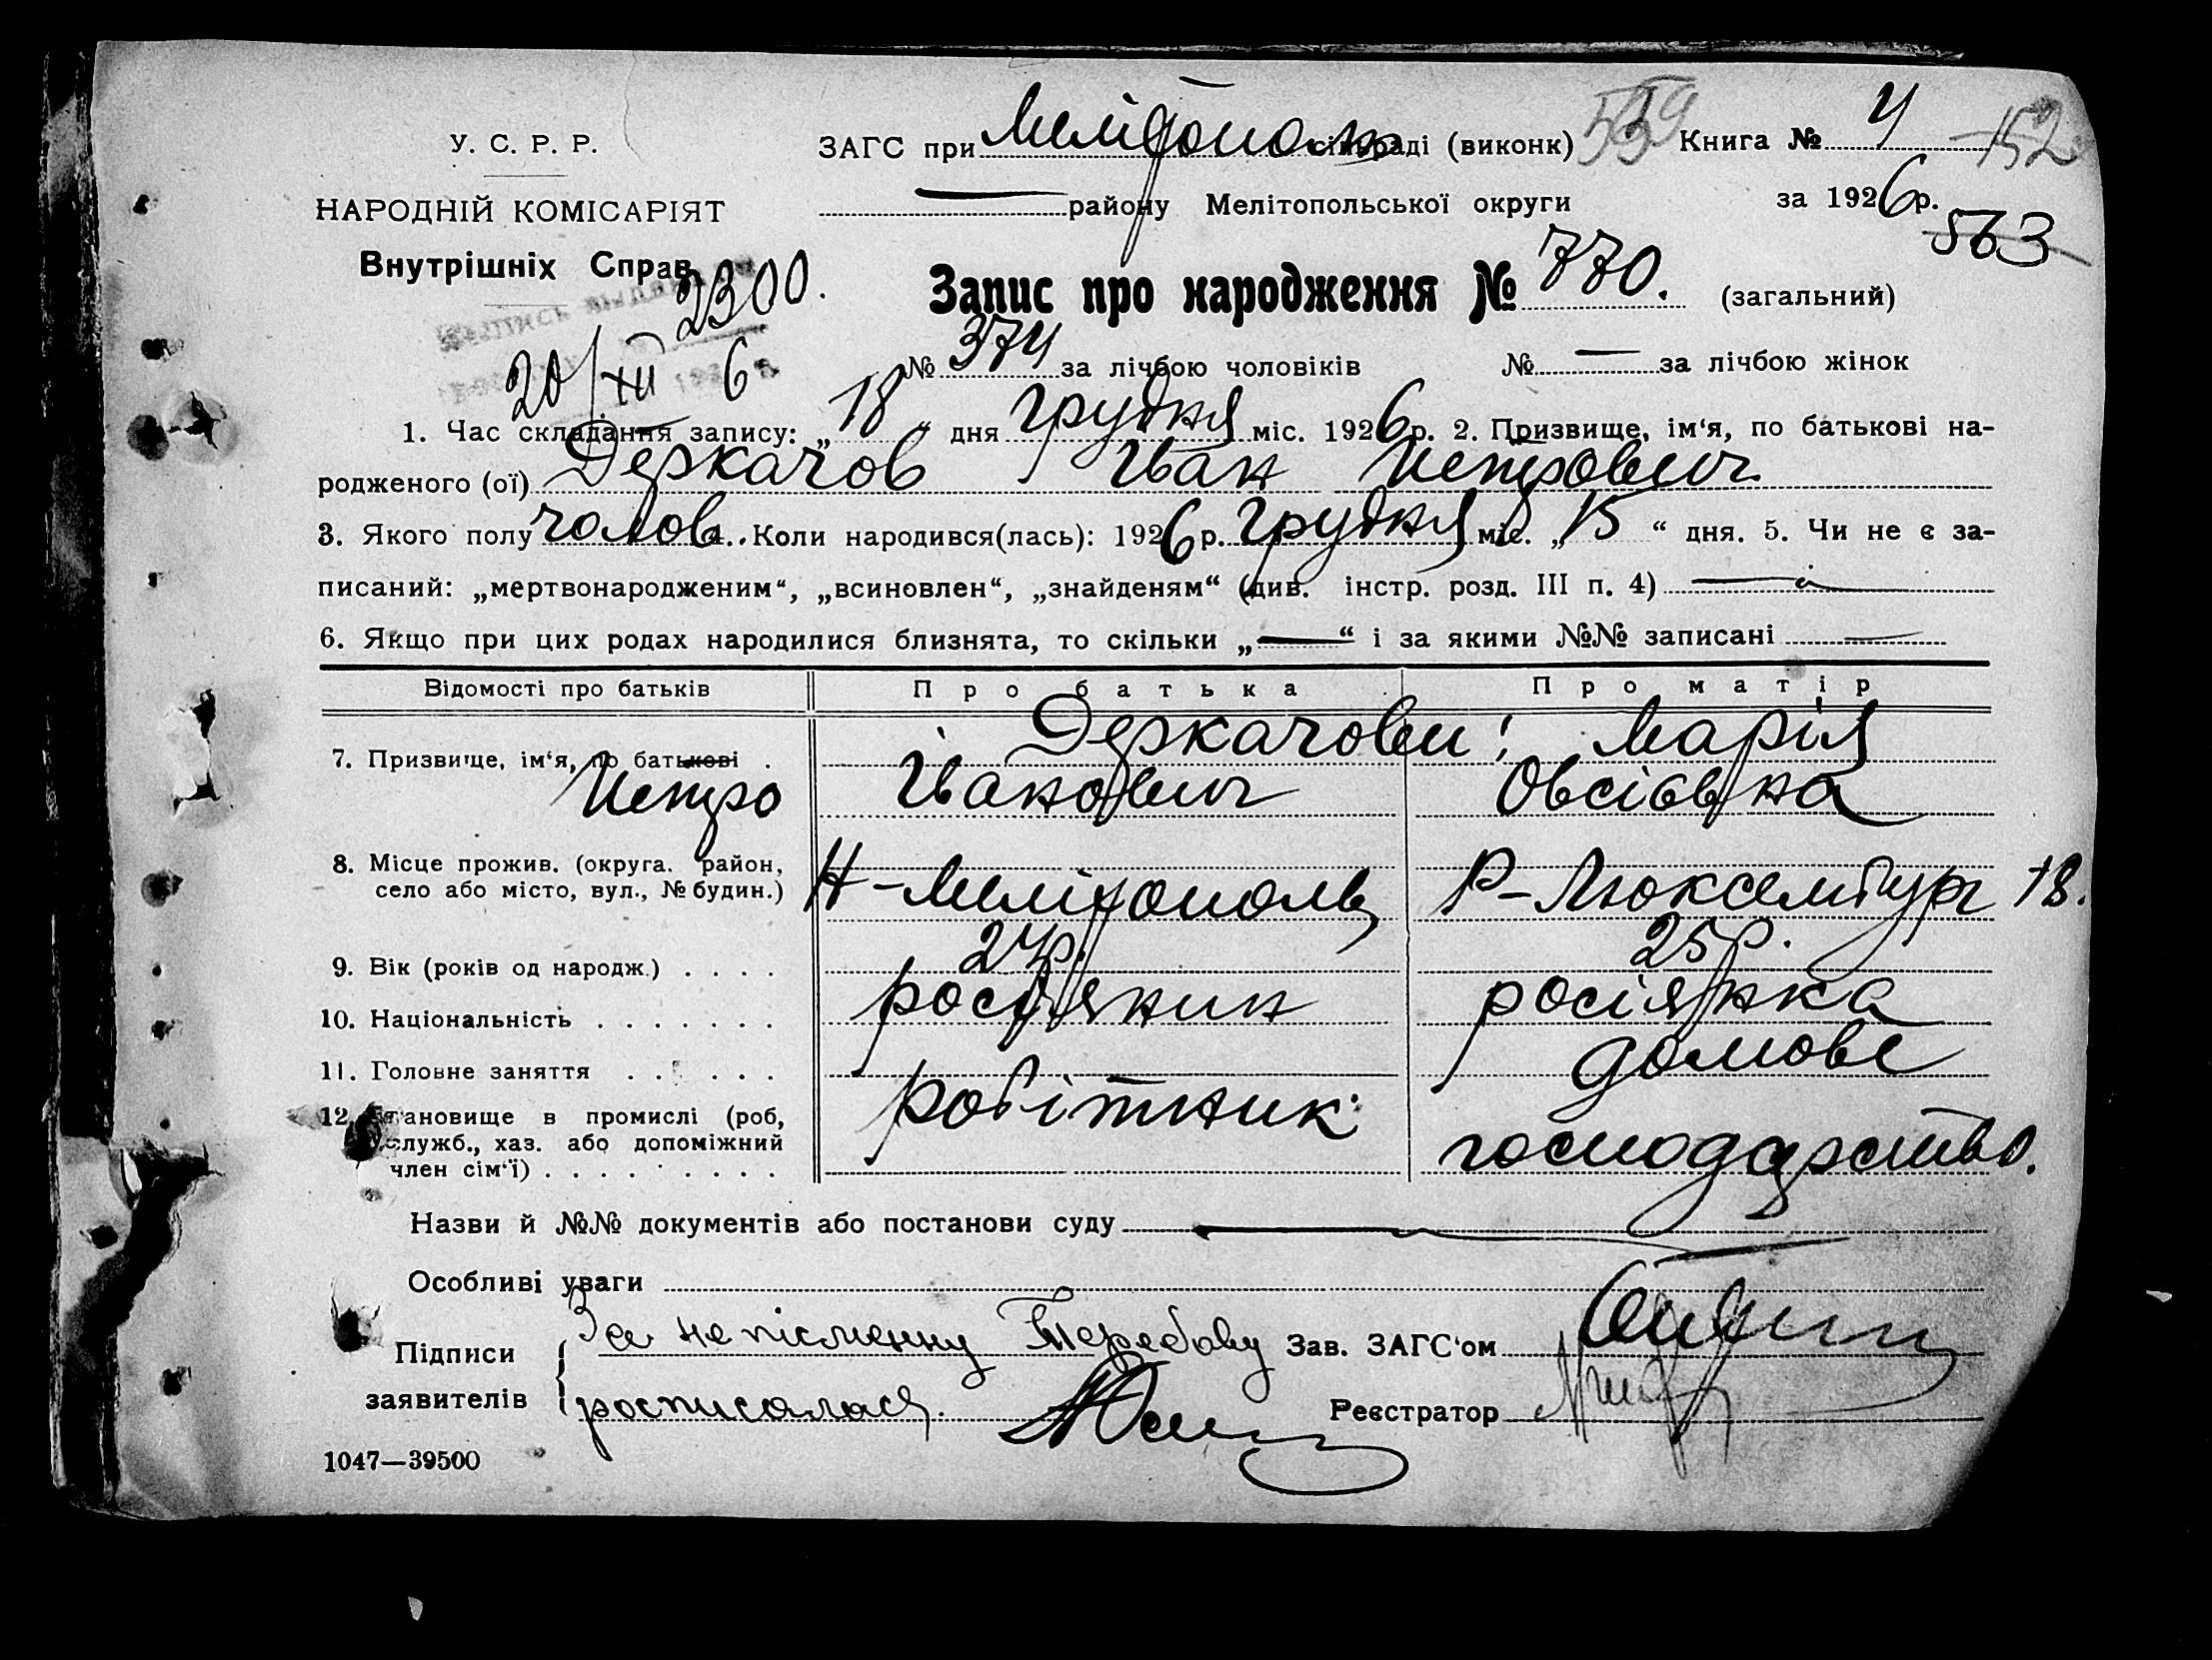 У. С. Р. Р.
НАРОДНІЙ КОМІСАРІЯТ
Внутрішніх Справ
2300.
20/XII 6
ЗАГС при Мелітополь сільраді (виконк) Книга № 4 152
району Мелітопольської округи за 1926 р.
563
Запис про народження № 770. (загальний)
№ 374 за лічбою чоловіків № — за лічбою жінок
1. Час складання запису: „18“ дня Грудня міс. 1926 р. 2. Призвище, ім‘я, по батькові на-
родженого (ої) Деркачов Іван Петрович
3. Якого полу чолов. Коли народився(лась): 1926 р. Грудня міс. „15“ дня. 5. Чи не є за-
писаний: „мертвонародженим“, „всиновлен“, „знайденям“ (див. інстр. розд. III п. 4) —
6. Якщо при цих родах народилися близнята, то скільки „—“ і за якими №№ записані —
Відомості про батьків Про батька Про матір
7. Призвище, ім‘я, по батькові Деркачови: Марія
Петро Іванович Овсіївна
8. Місце прожив. (округа. район,
село або місто, вул., № будин.) Н-Мелітополь Р-Люксембург 18.
9. Вік (років од народж.) 27р. 25р.
10. Національність росіянин росіянка
11. Головне заняття робітник домове
12. Становище в промислі (роб,
служб., хаз. або допоміжний
член сім‘ї) господарство.
Назви й №№ документів або постанови суду —
Особливі уваги
Підписи заявителів За неписменну Зав. ЗАГС‘ом
росписалась. Реєстратор
1047—39500